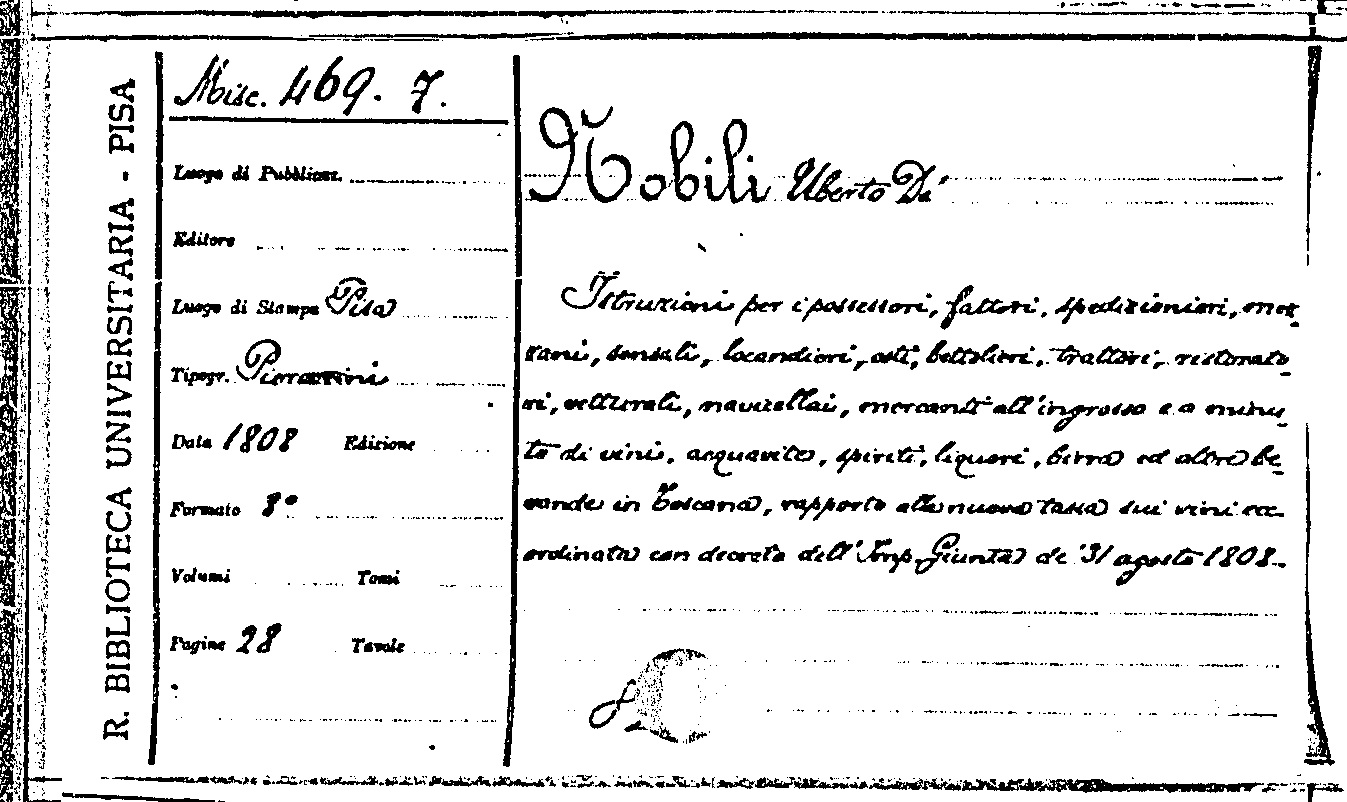 R. BIBLIOTECA UNIVERSITARIA - PISA
Misc. 469. 7.
Luogo di Pubblicaz.
Editore
Luogo di Stampa Pisa
Tipogr. Pieraccini
Data 1808 Edizione
Formato 8°
Volumi Tomi
Pagine 28 Tavole
Nobili Uberto De'
Istruzioni per i possessori, fattori, spedizionieri, mez-
zani, sensali, locandieri, osti, bettolieri, trattori, ristorato-
ri, vetturali, navicellai, mercanti all'ingrosso e a minu-
to di vini, acquavite, spiriti, liquori, birra ed altre be-
vande in Toscana, rapporto alla nuova tassa sui vini ecc.
ordinata con decreto dell'Imp. Giunta de' 31 agosto 1808.